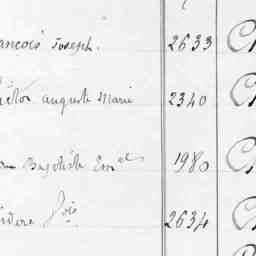 ançois Joseph. 2633
ictor auguste Marie 2340
Baptiste Em.el 1980
idore fois 2634